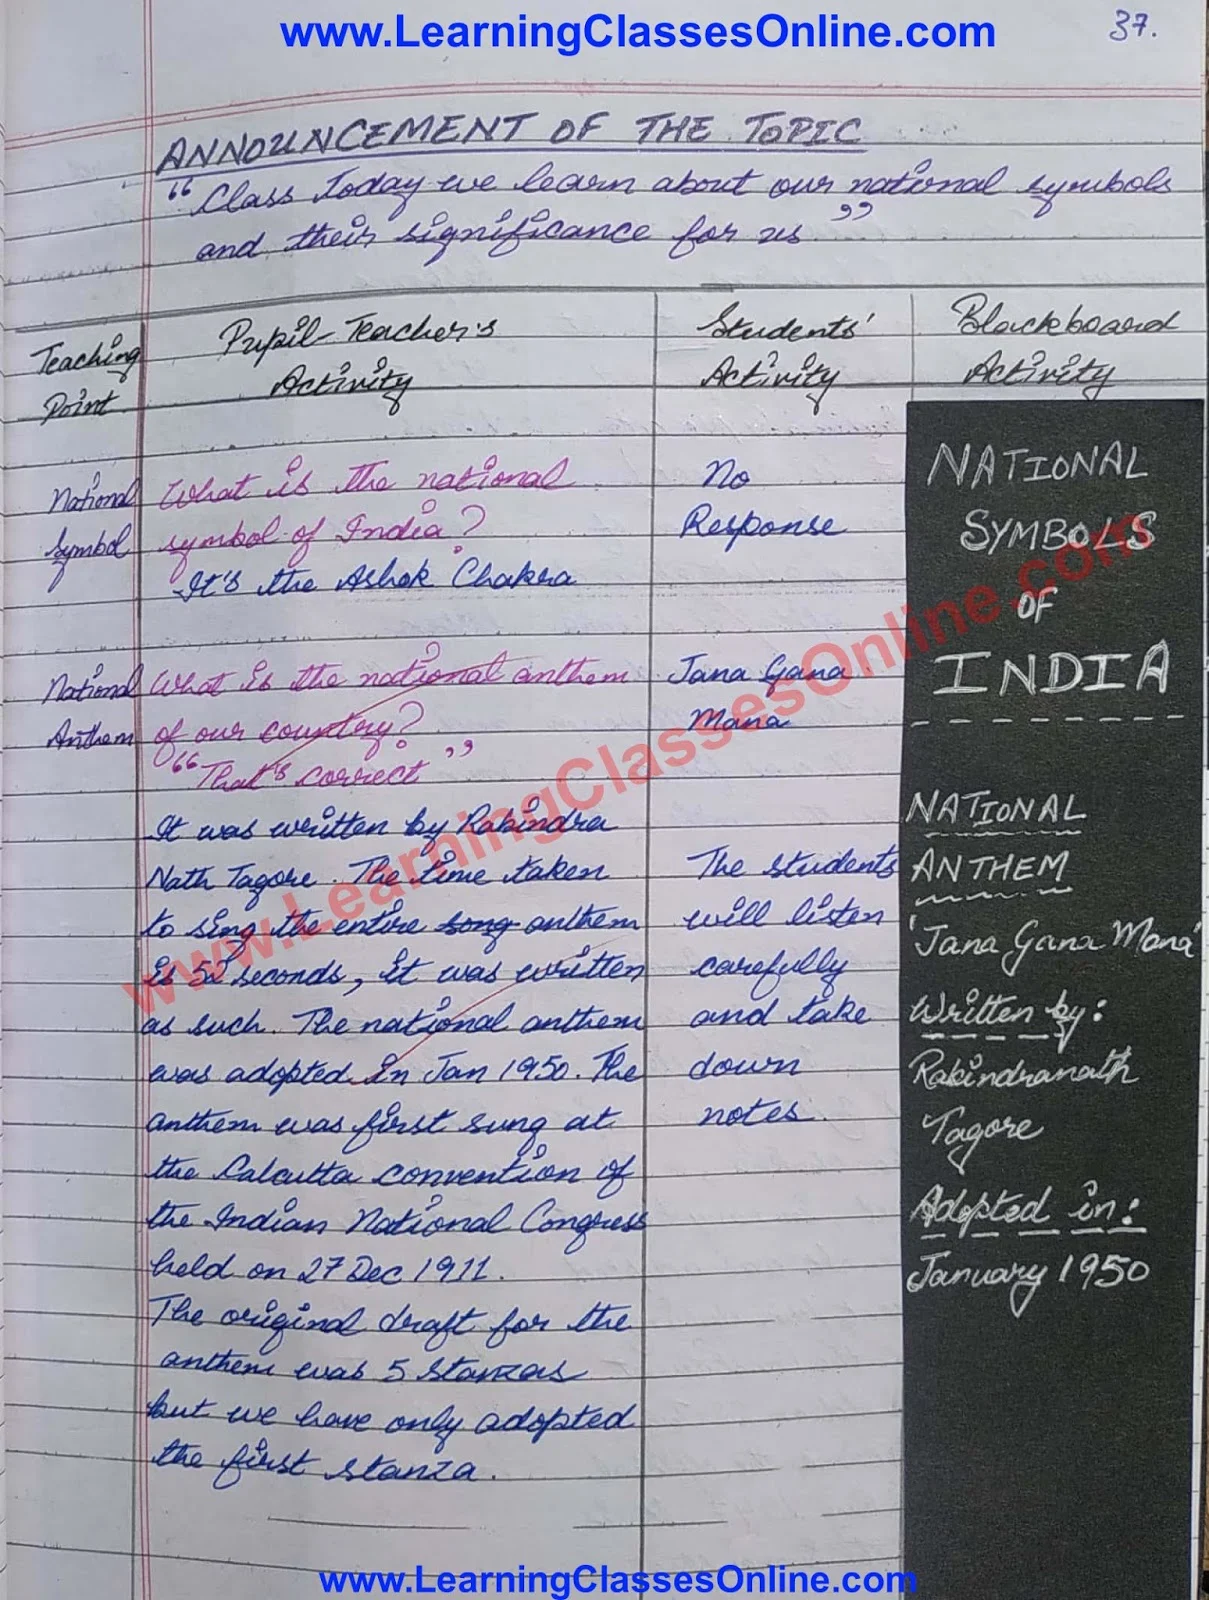 www.LearningClassesOnline.com
37.
ANNOUNCEMENT OF THE TOPIC
"Class Today we learn about our national symbols
and their significance for us"
Teaching
Point
Pupil-Teacher's
Activity
Students'
Activity
Blackboard
Activity
National
Symbol
What is the national
symbol of India?
It's the Ashok Chakra
No
Response
National
Anthem
What is the national anthem
of our country?
"That's correct"
It was written by Rabindra
Nath Tagore. The time taken
to sing the entire song anthem
is 52 seconds, it was written
as such. The national anthem
was adopted in Jan 1950. The
anthem was first sung at
the Calcutta convention of
the Indian National Congress
held on 27 Dec 1911.
The original draft for the
anthem was 5 stanzas
but we have only adopted
the first stanza.
Jana Gana
Mana
The students
will listen
carefully
and take
down
notes.
NATIONAL
SYMBOLS
OF
INDIA
NATIONAL
ANTHEM
'Jana Gana Mana'
Written by:
Rabindranath
Tagore
Adopted in:
January 1950
www.LearningClassesOnline.com
www.LearningClassesOnline.com